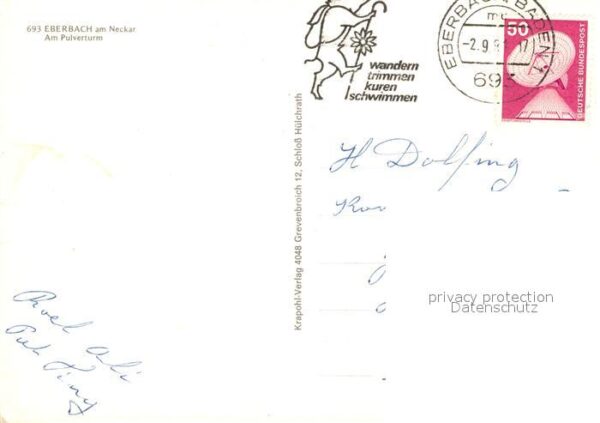 693 EBERBACH am Neckar
Am Pulverturm
wandern
trimmen
kuren
schwimmen
EBERBACH, BADEN 1
-2.9.8
17
693
50
DEUTSCHE BUNDESPOST
Krapohl-Verlag 4048 Grevenbroich 12, Schloß Hülchrath
H Dolfing
privacy protection
Datenschutz
Roel